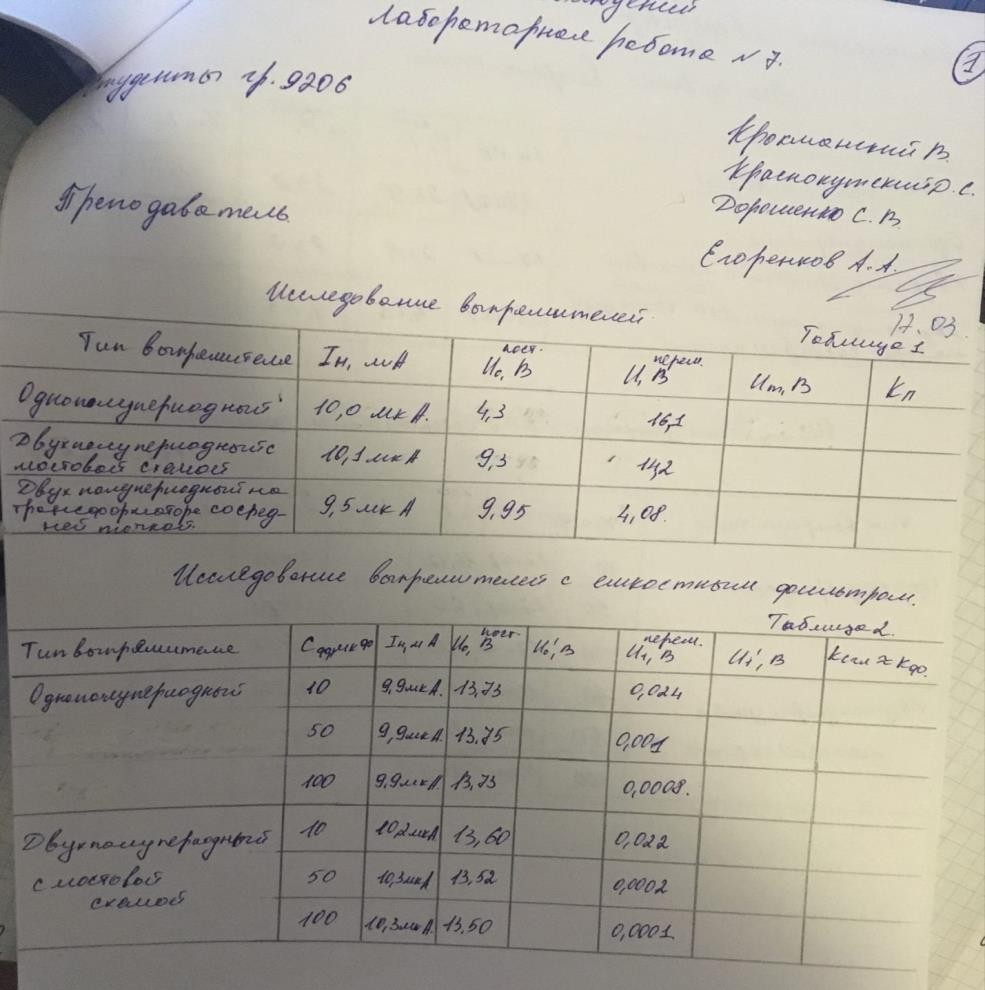 Лабораторная работа №7.
1
Студенты гр. 9206
Крокманский В.
Краснокутский Д. С.
Дорошенко С. В.
Преподаватель
Егоренков А. А.
17.03
Исследование выпрямителей.
Таблица 1
Тип выпрямителя Iн, мА пост. U₀, В перем. U, В Um, В Кп
Однополупериодный 10,0 мкА. 4,3 16,1
Двухполупериодный с
мостовой схемой 10,1 мкА 9,3 14,2
Двухполупериодный на
трансформаторе со сред-
ней точкой. 9,5 мкА 9,95 4,08.
Исследование выпрямителей с емкостным фильтром.
Таблица 2.
Тип выпрямителя Iн, мА пост. U₀, В U₀', В перем. U₁, В U₁', В Ксгл ≈ Кдо.
Однополупериодный 10 9,9мкА. 13,73 0,024
50 9,9мкА. 13,75 0,001
100 9,9мкА. 13,73 0,0008.
Двухполупериодный 10 10,2мкА 13,60 0,022
с мостовой 50 10,3мкА 13,52 0,0002
схемой
100 10,3мкА. 13,50 0,0001